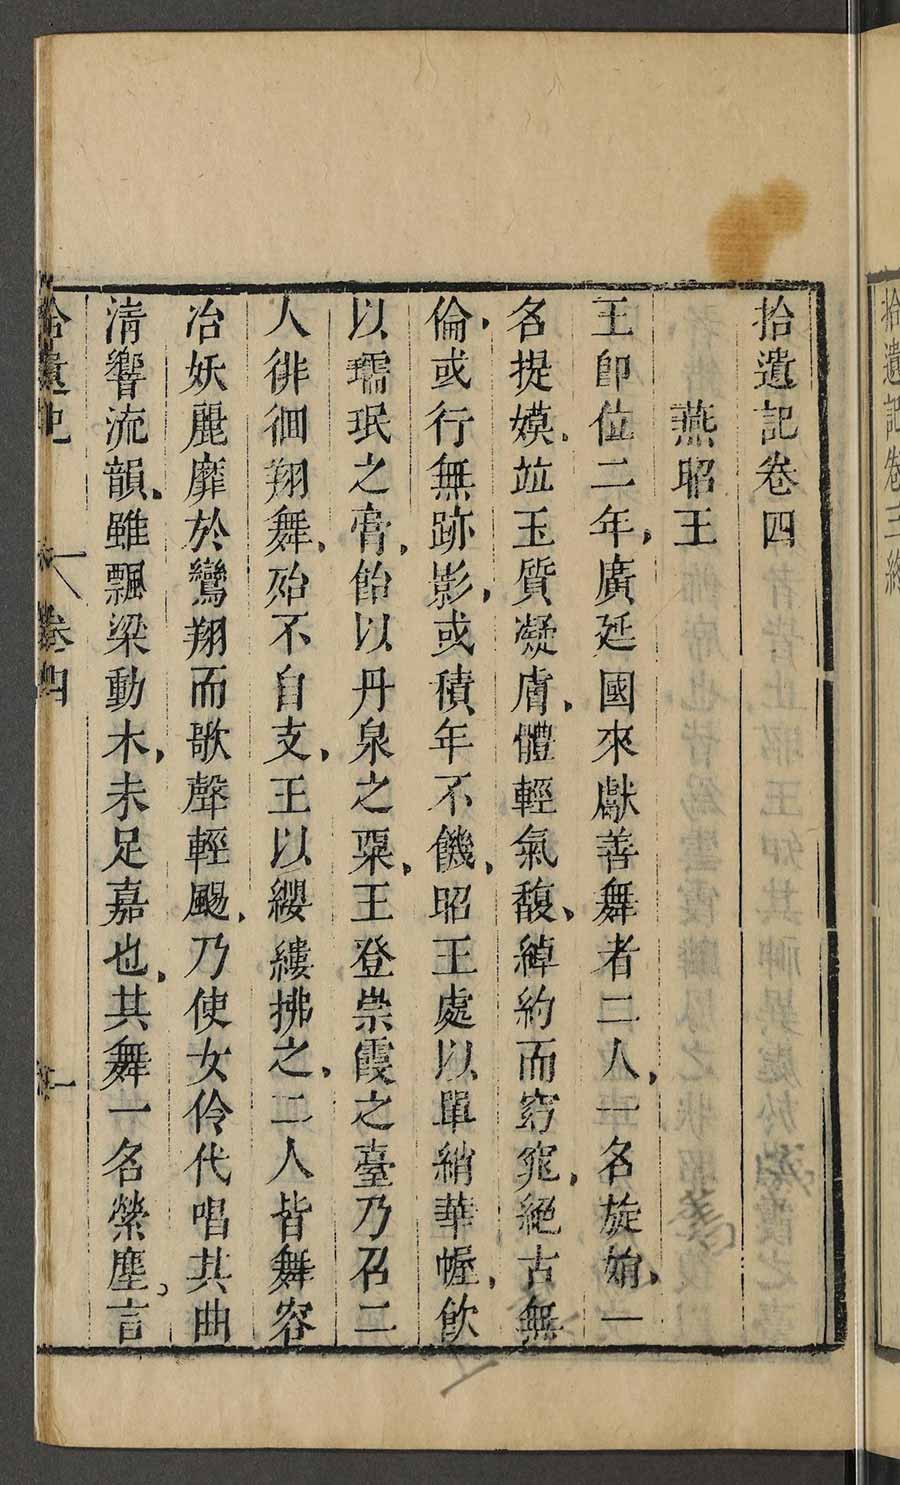 拾遺記卷四
燕昭王
王卽位二年，廣延國來獻善舞者二人，一名旋娟，一
名提嫫，竝玉質凝膚，體輕氣馥，綽約而窈窕，絕古無
倫，或行無跡影，或積年不饑，昭王處以單綃華幄，飲
以瓀珉之膏，飴以丹泉之粟，王登崇霞之臺乃召二
人徘徊翔舞，殆不自支，王以纓縷拂之，二人皆舞容
冶妖麗靡於鸞翔而歌聲輕颺，乃使女伶代唱其曲
淸響流韻，雖飄梁動木，未足嘉也，其舞一名縈塵。言
拾遺記 卷四 一
拾遺記卷三終